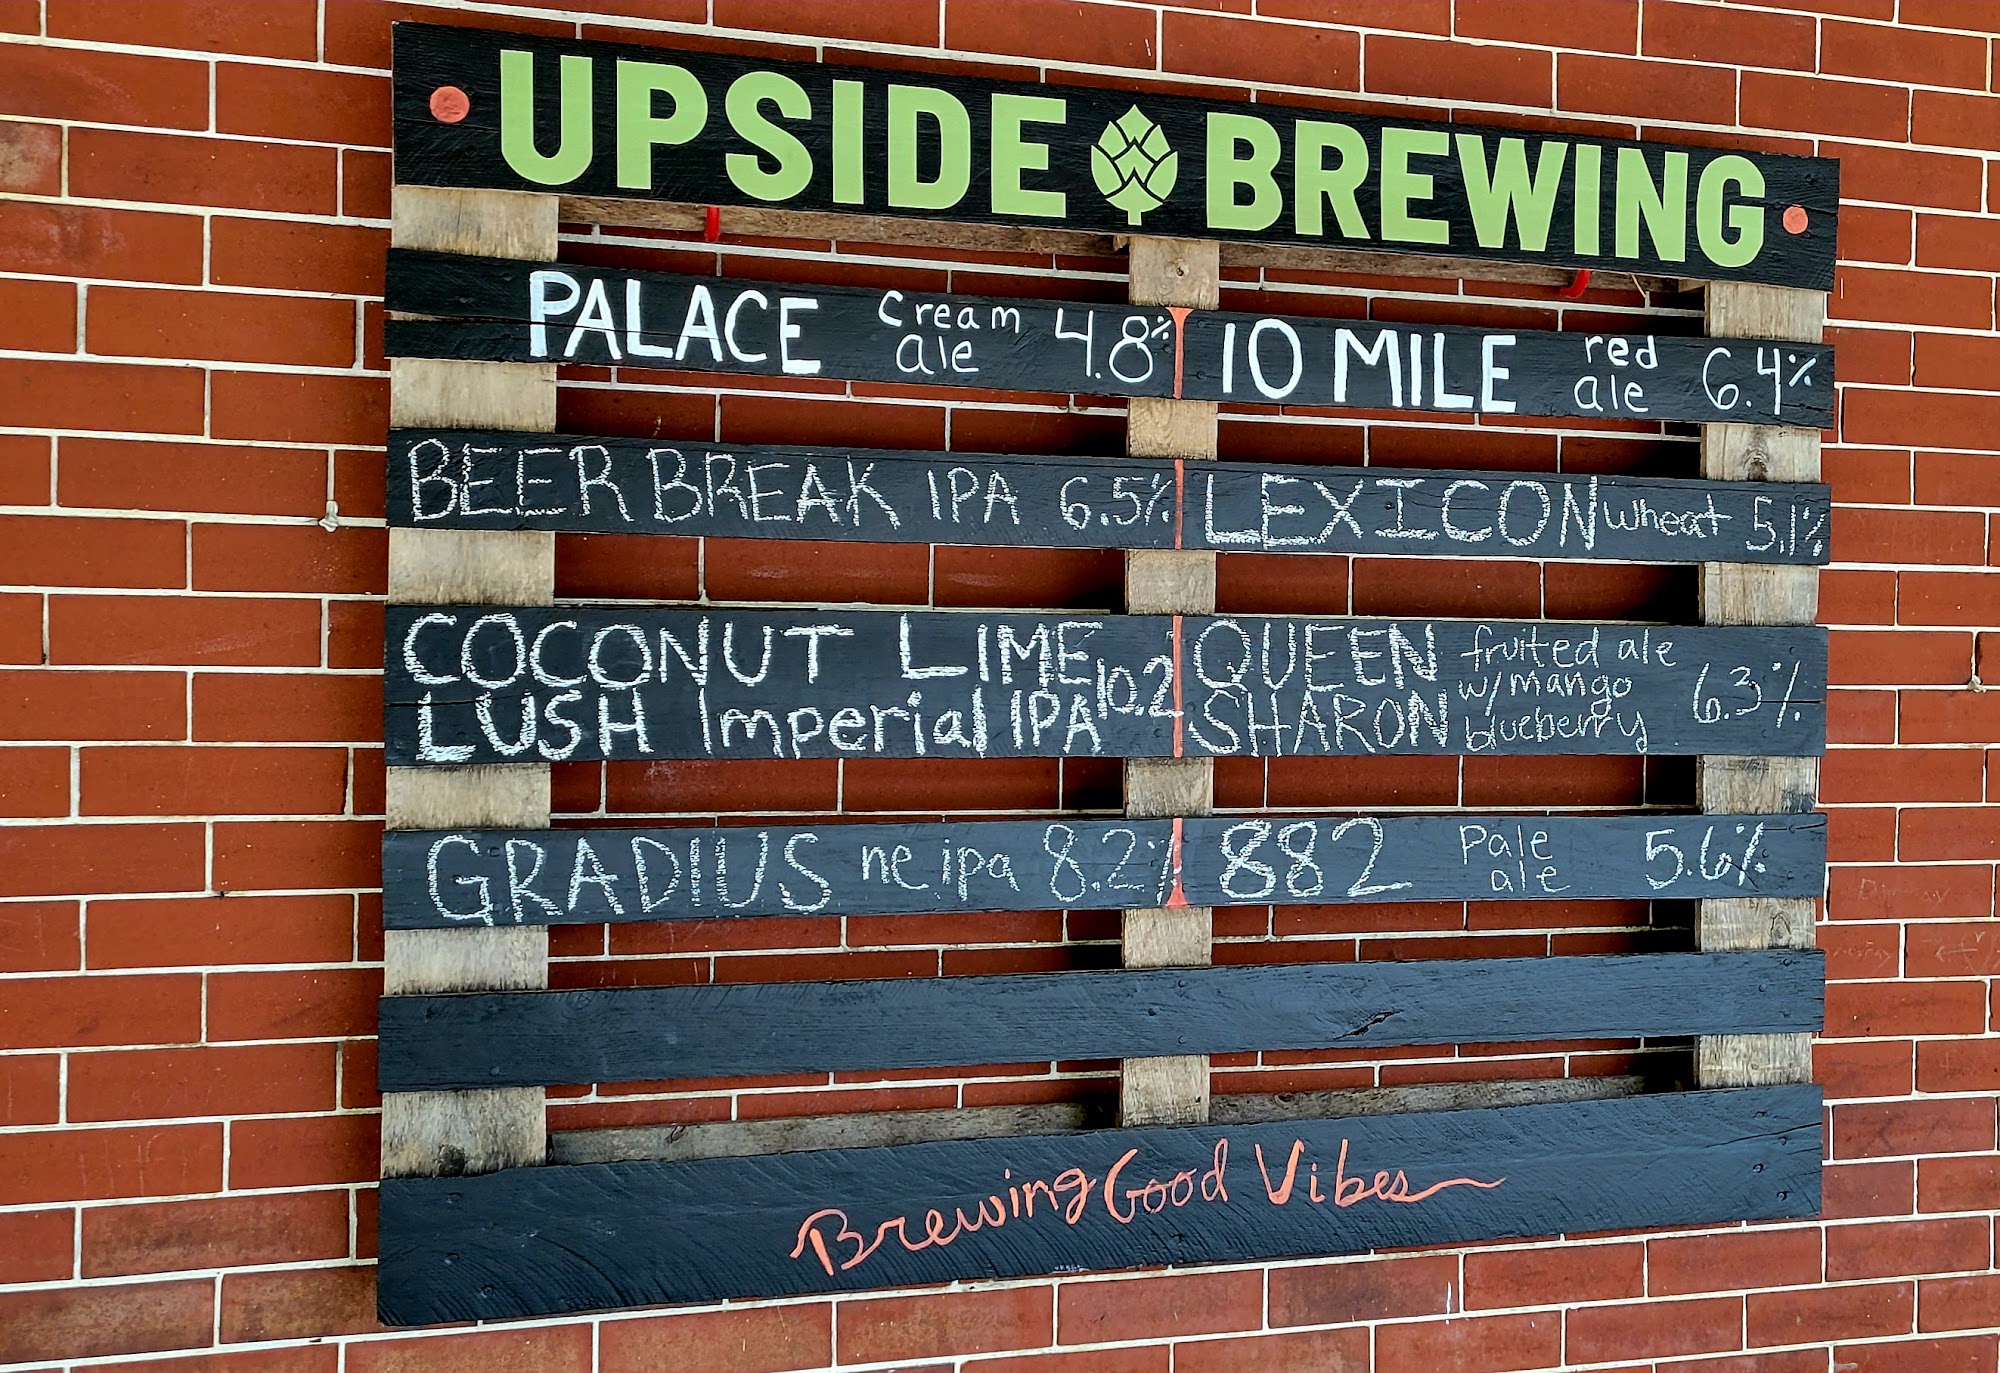 UPSIDE BREWING
PALACE cream ale 4.8%
10 MILE red ale 6.4%
BEER BREAK IPA 6.5%
LEXICON wheat 5.1%
COCONUT LIME
LUSH Imperial IPA 10.2
QUEEN SHARON fruited ale w/mango blueberry 6.3%
GRADIUS ne ipa 8.2%
882 Pale ale 5.6%
Brewing Good Vibes